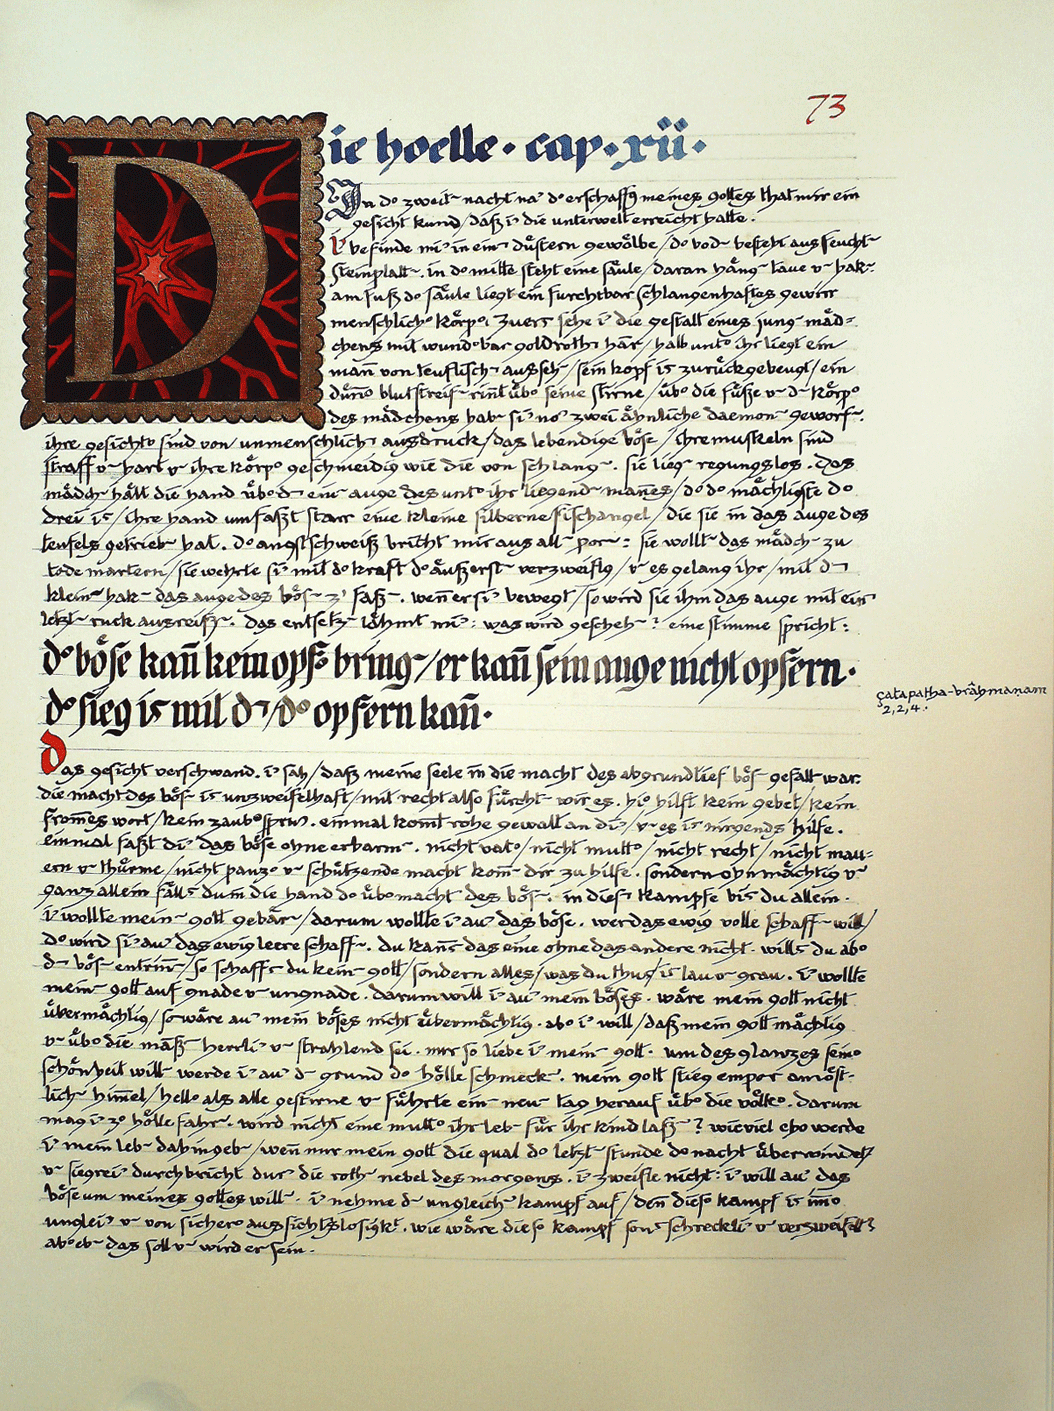 73
Die hoelle · cap · xii ·
In d’ zweit- nacht na’ d’ erschaffg meines gottes that mir ein
gesicht kund/ daß i’ die unterwelt erreicht hatte.
i’ befinde mi’ in ein- düstern gewölbe/ d’ bod- besteht aus feucht-
steinplatt-. in d’ mitte steht eine säule/ daran häng- taue u- hak-.
am fuß d’ säule liegt ein furchtbar schlangenhaftes gewirr
menschlich’ körp’. zuerst sehe i’ die gestalt eines jung- mäd-
chens mit wund’bar goldroth- har/ halb unt’ ihr liegt ein
mañ von teuflisch- ausseh-/ sein kopf ist zurückgebeugt/ ein
düñ’ blutstreif- riñt üb’ seine stirne/ üb’ die füße u- d- körp’
des mädchens hab- si’ no’ zwei ähnliche daemon- geworf-.
ihre gesicht’ sind von unmenschlich- ausdruck/ das lebendige böse/ ihre muskeln sind
straff u- hart u- ihre körp’ geschmeidig wie die von schlang-. sie lieg- regungslos. das
mädch- hält die hand üb’ d- eine auge des unt’ ihr liegend- mañes/ d’ d’ mächtigste d’
drei ist/ ihre hand umfaßt starr eine kleine silberne fischangel/ die sie in das auge des
teufels getrieb- hat. d’ angstschweiß bricht mir aus all- por-: sie wollt- das mädch- zu
tode martern/ sie wehrte si’ mit d’ kraft d’ äußerst- verzweiflg/ u- es gelang ihr/ mit d-
klein- hak- das auge des bös- z’ faß-. weñ er si’ bewegt/ so wird sie ihm das auge mit ein-
letzt- ruck ausreiß-. das entsetz- lähmt mi’: was wird gescheh-? eine stimme spricht:
d’ böse kañ kein opf’ bring-/ er kañ sein auge nicht opfern.
d’ sieg ist mit d-/ d’ opfern kañ.
çatapatha-brâhmaṇam
2,2,4.
das gesicht verschwand. i’ sah/ daß meine seele in die macht des abgrundtief bös- gefall- war.
die macht des bös- ist unzweifelhaft/ mit recht also fürcht- wir es. hi’ hilft kein gebet/ kein
from̃es wort/ kein zaub’spruch. einmal kom̃t rohe gewalt an di’/ u- es ist nirgends hilfe.
einmal faßt di’ das böse ohne erbarm-. nicht vat’/ nicht mutt’/ nicht recht/ nicht mau-
ern u- thürme/ nicht panz’ u- schützende macht kom̃- dir zu hilfe. sondern ohnmächtig u-
ganz allein fällst du in die hand d’ üb’macht des bös-. in dies- kampfe bist du allein.
i’ wollte mein- gott gebär-/ darum wollte i’ au’ das böse. wer das ewig volle schaff- will/
d’ wird si’ au’ das ewig leere schaff-. du kañst das eine ohne das andere nicht. willst du ab’
d- bös- entriñ-/ so schaffst du kein- gott/ sondern alles/ was du thust/ ist lau u- grau. i’ wollte
mein- gott auf gnade u- ungnade. darum will i’ au’ mein böses. wäre mein gott nicht
übermächtig/ so wäre au’ mein böses nicht übermächtig. ab’ i’ will/ daß mein gott mächtig
u- üb’ die maß- herrli’ u- strahlend sei. nur so liebe i’ mein- gott. um des glanzes sein’
schönheit will- werde i’ au’ d- grund d’ hölle schmeck-. mein gott stieg empor am öst-
lich- him̃el/ hell’ als alle gestirne u- führte ein- neu- tag herauf üb’ die völk’. darum
mag i’ z’ hölle fahr-. wird nicht eine mutt’ ihr leb- für ihr kind laß-? wieviel eh’ werde
i’ mein leb- dahingeb-/ weñ nur mein gott die qual d’ letzt- stunde d’ nacht überwindet
u- siegrei’ durchbricht dur’ die roth- nebel des morgens. i’ zweifle nicht: i’ will au’ das
böse um meines gottes will-. i’ nehme d- ungleich- kampf auf/ deñ dies’ kampf ist im̃’
unglei’ u- von sicher’ aussichtslosigkt. wie wäre dies’ kampf sonst schreckli’ u- verzweifelt?
ab’ eb- das soll u- wird er sein.